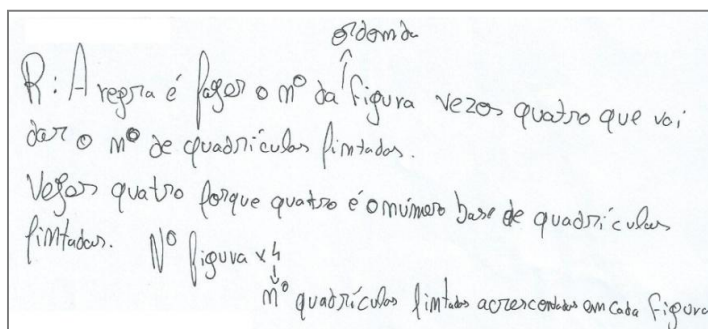 ordem da
R: A regra é fazer o nº da figura vezes quatro que vai
dar o nº de quadrículas pintadas.
Vezes quatro porque quatro é o número base de quadrículas
pintadas. Nº figura x 4
nº quadrículas pintadas acrescentadas em cada figura